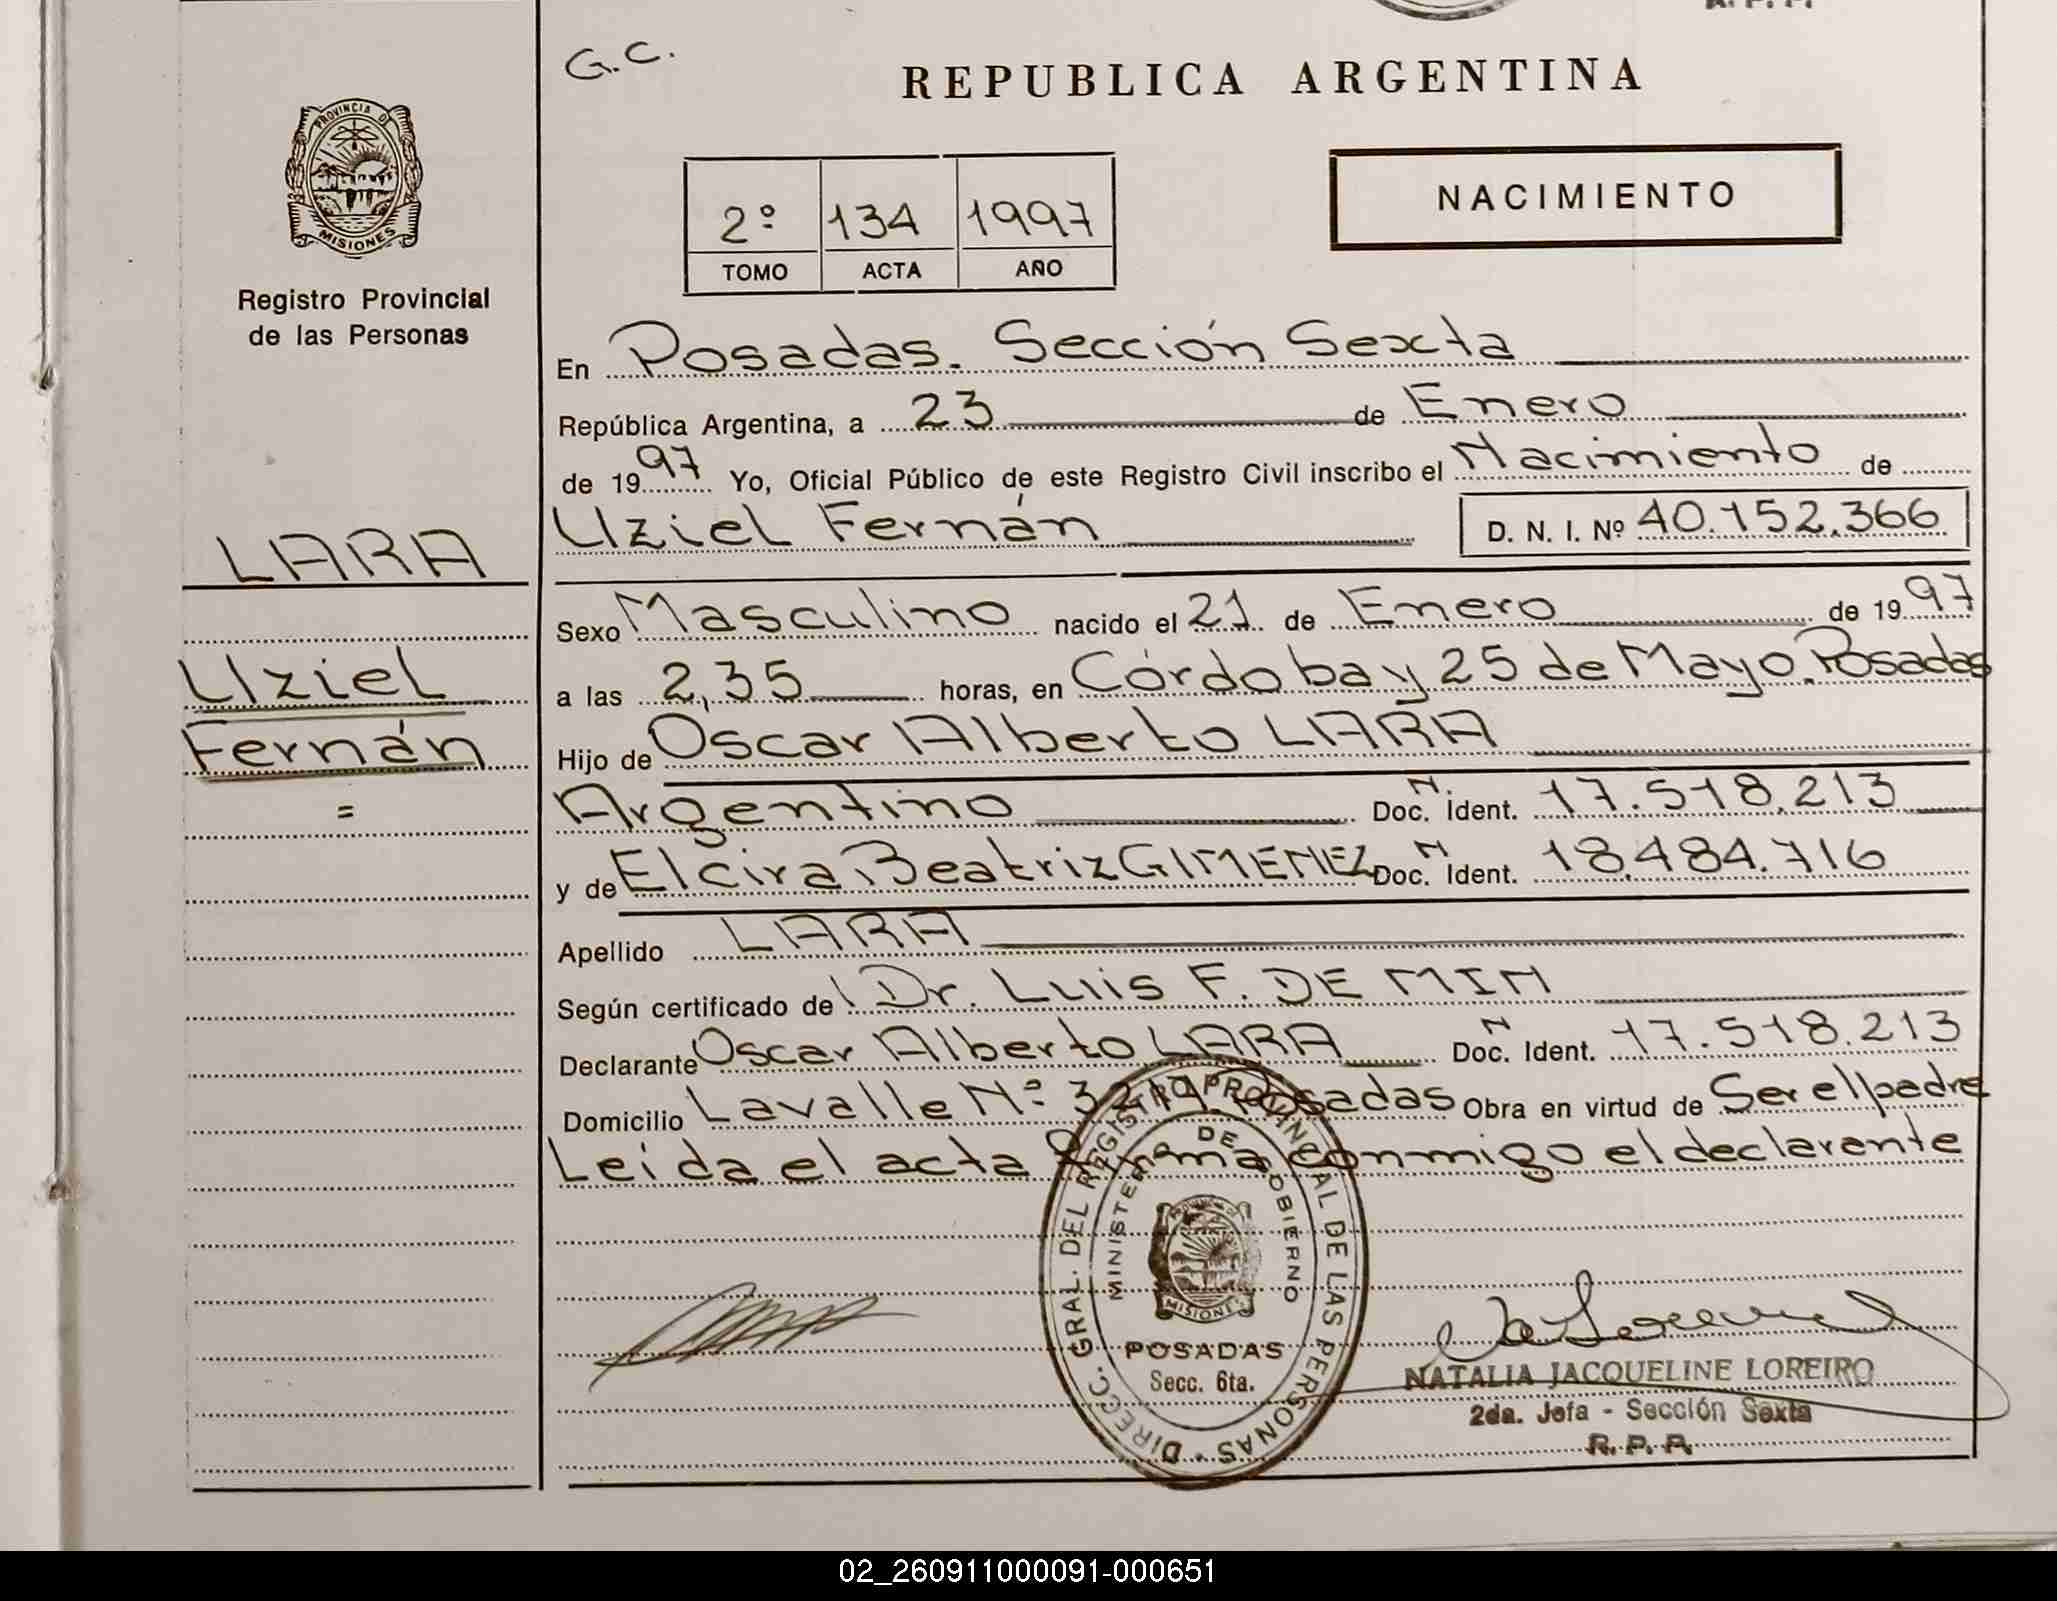 G.C.
REPUBLICA ARGENTINA
PROVINCIA DE
MISIONES
Registro Provincial
de las Personas
2º 134 1997
TOMO ACTA AÑO
NACIMIENTO
En Posadas. Sección Sexta
República Argentina, a 23 de Enero
de 1997 Yo, Oficial Público de este Registro Civil inscribo el Nacimiento de
Uziel Fernán D. N. I. Nº 40.152.366
LARA
Uziel
Fernán
=
Sexo Masculino nacido el 21 de Enero de 1997
a las 2,35 horas, en Córdoba y 25 de Mayo. Posadas
Hijo de Oscar Alberto LARA
Argentino Doc. N. Ident. 17.518.213
y de Elcira Beatriz GIMENEZ Doc. N Ident. 18.484.716
Apellido LARA
Según certificado de Dr. Luis F. DE MIN
Declarante Oscar Alberto LARA Doc. N Ident. 17.518.213
Domicilio Lavalle Nº Posadas Obra en virtud de Ser el padre
Leída el acta firma conmigo el declarante
DIRECC. GRAL. DEL REGISTRO PROVINCIAL DE LAS PERSONAS
MINISTERIO DE GOBIERNO
MISIONES
POSADAS
Secc. 6ta.
NATALIA JACQUELINE LOREIRO
2da. Jefa - Sección Sexta
R. P. P.
02_260911000091-000651